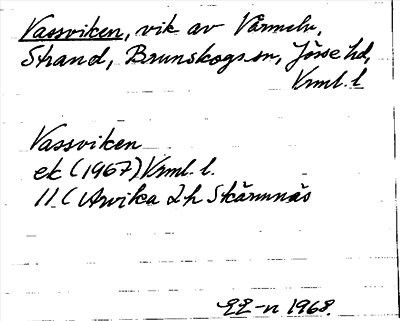 Vassviken, vik av Värmeln,
Strand, Brunskogs sn, Jösse hd,
Vrml. l.
Vassviken
ek (1967) Vrml. l.
11 C Arvika 2 h Skärmnäs
-n 1968.